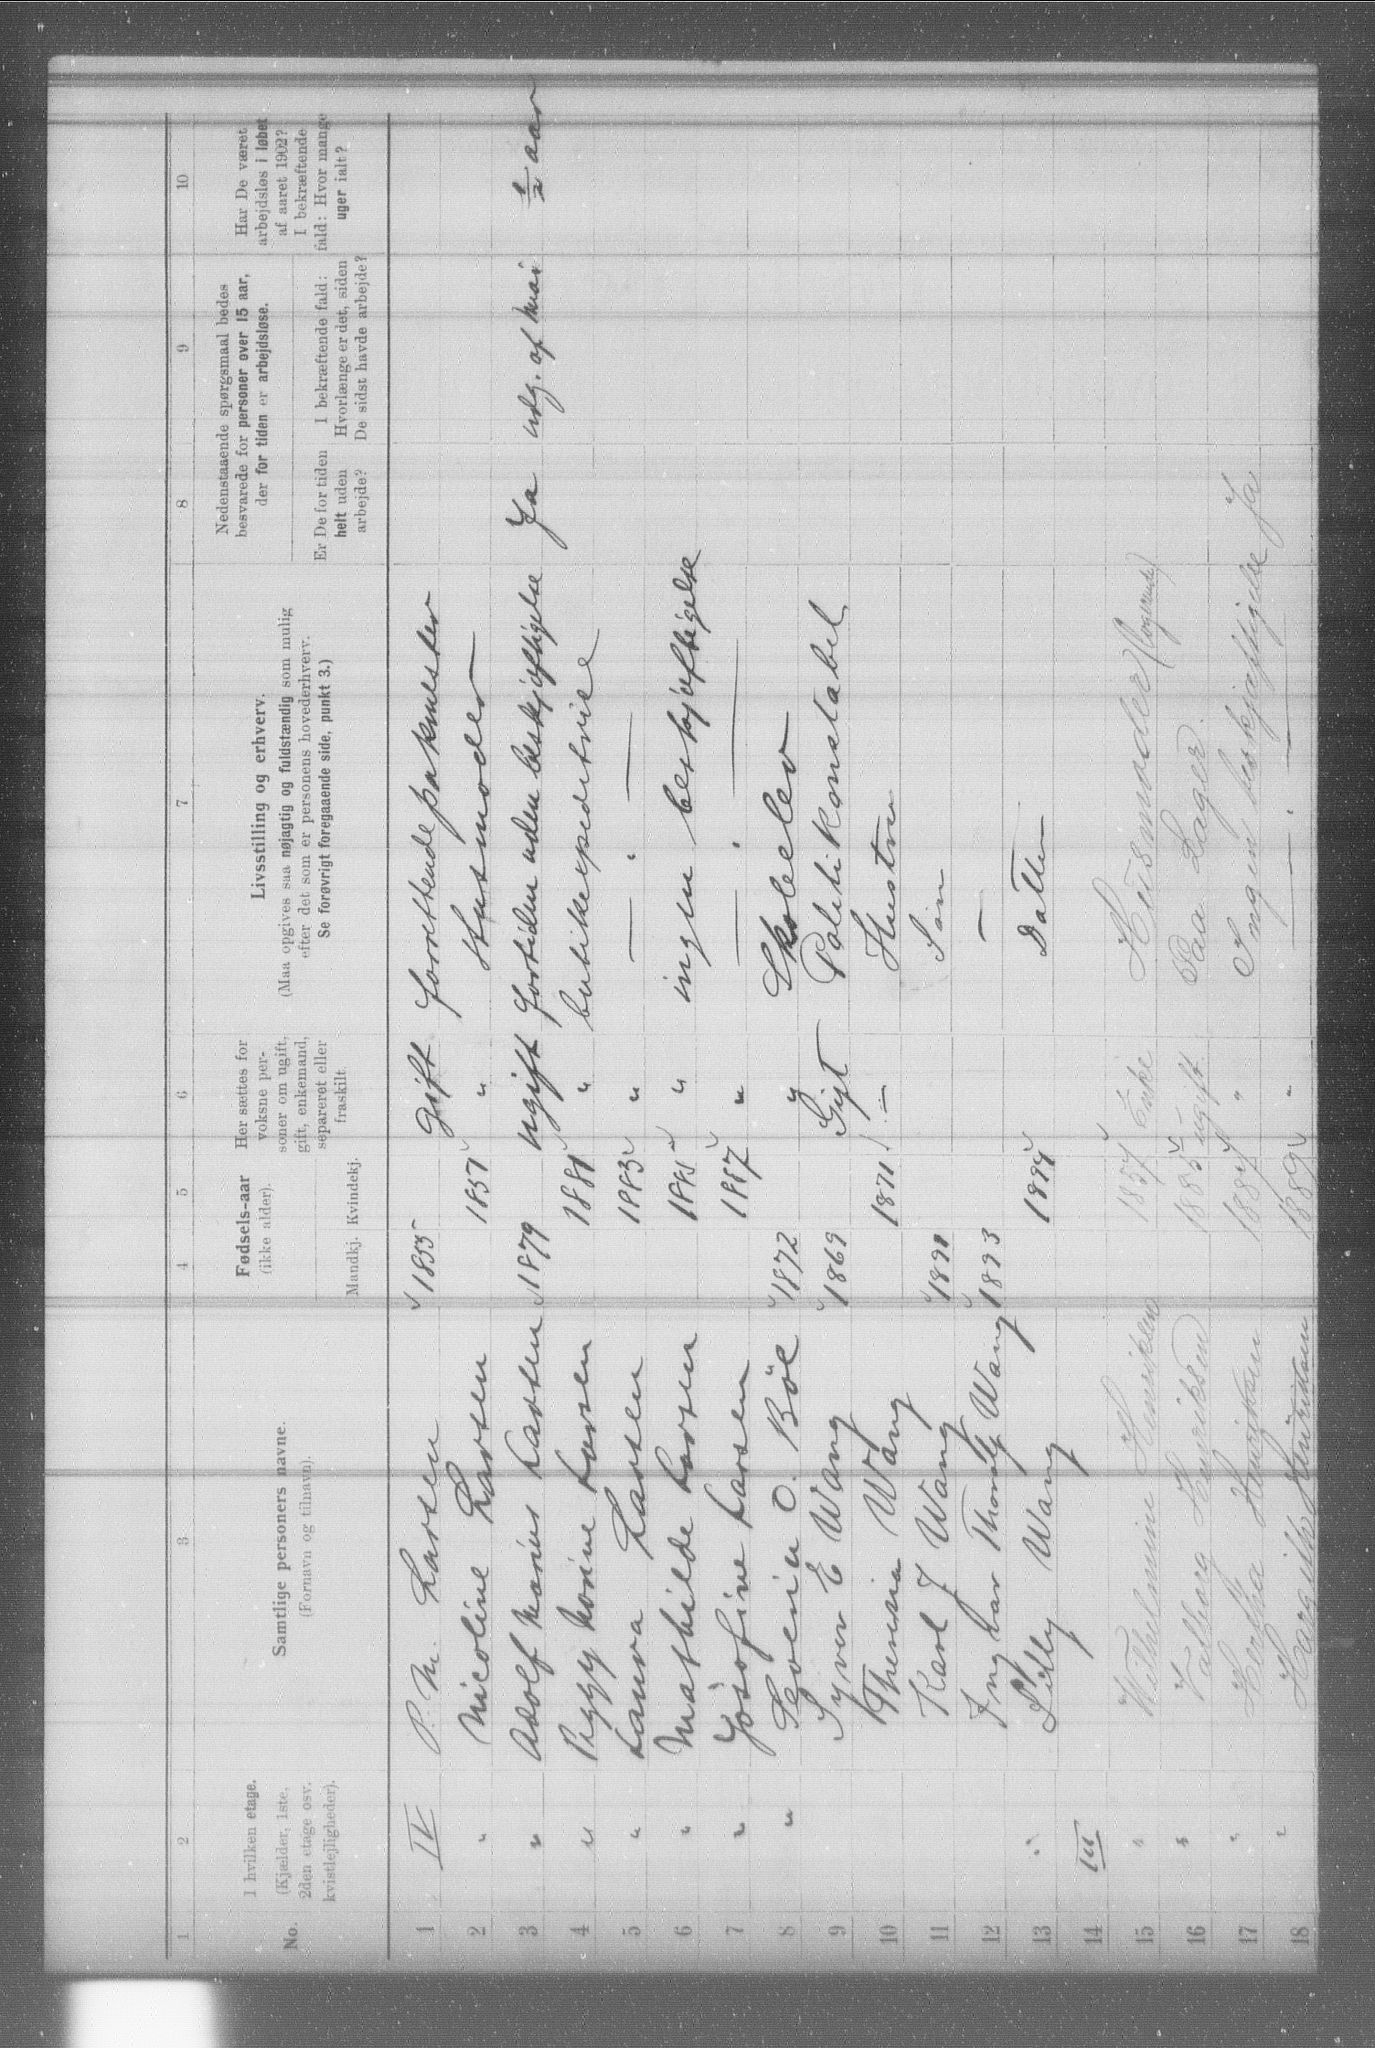 1 2 3 4 5 6 7 8 9 10
No.
I hvilken etage.
(Kjælder, 1ste,
2den etage osv.
kvistlejligheder).
Samtlige personers navne.
(Fornavn og tilnavn).
Fødsels-aar
(ikke alder).
Mandkj. Kvindekj.
Her sættes for
voksne per-
soner om ugift,
gift, enkemand,
separeret eller
fraskilt.
Livsstilling og erhverv.
(Maa opgives saa nøjagtig og fuldstændig som mulig
efter det som er personens hovederhverv.
Se forøvrigt foregaaende side, punkt 3.)
Nedenstaaende spørgsmaal bedes
besvarede for personer over 15 aar,
der for tiden er arbejdsløse.
Er De for tiden
helt uden
arbejde?
I bekræftende fald:
Hvorlænge er det, siden
De sidst havde arbejde?
Har De været
arbejdsløs i løbet
af aaret 1902?
I bekræftende
fald: Hvor mange
uger ialt?
1 IV P. M. Larsen 1855 gift pakmester
2 " Nicoline Larsen 1857 " Husmoder
3 " Adolf Marius Larsen 1879 ugift fortiden uden beskjæftigelse Ja udg. af mai 1/2 aar
4 " Larsen 1881 "
5 " Laura Larsen 1883 " — " —
6 " Mathilde Larsen 1885 " ingen beskjæftigelse
7 " Josofine Larsen 1887 " — " —
8 " O. Böe 1872 " Skoleelev
9 Syver E Wang 1869 Gift Politikonstabel
10 Theresia Wang 1871 — Hustru
11 Karl J Wang 1890 Søn
12 Ingvar Thorolf Wang 1893 —
13 " Lilly Wang 1899 Datter
14 III
15 " Wilhelmine Henriksen 1857 Enke Husmoder
16 " Valborg Henriksen 1885 ugift Paa Lager
17 " Hertha Henriksen 1887 " Ingen beskjæftigelse Ja
18 " Henriksen 1889 " — " —